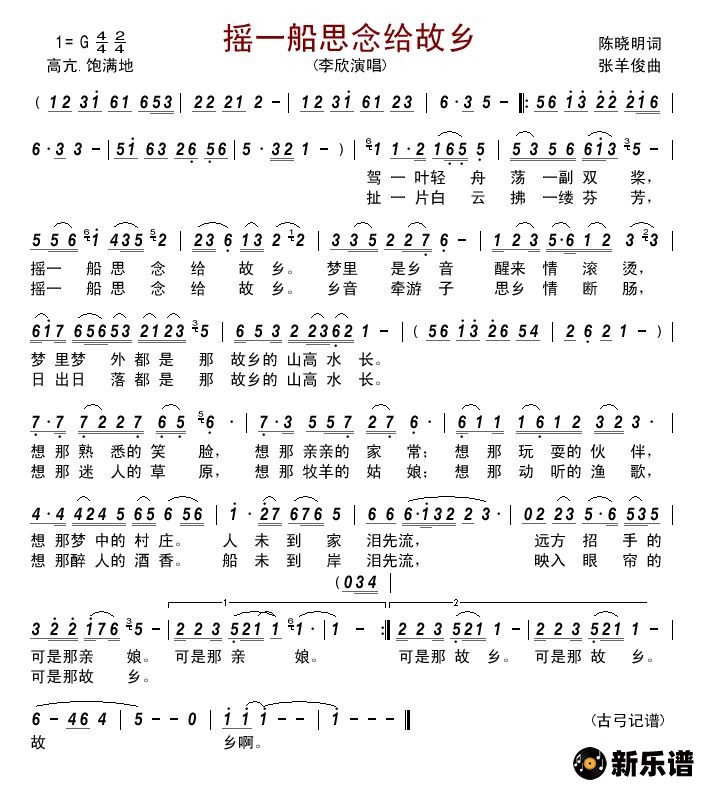 摇一船思念给故乡
1= G 4/4 2/4
高亢.饱满地
(李欣演唱)
陈晓明词
张羊俊曲
( 12 31 61 653 | 22 21 2 - | 12 31 61 23 | 6 · 3 5 - |: 56 13 22 216 |
6 · 3 3 - | 51 63 26 56 | 5 · 32 1 | 1 - ) | 1 1·2 165 5 | 5 3 5 6 613 5 - |
驾 一 叶轻 舟 荡 一副 双 桨，
扯 一 片白 云 拂 一缕 芬 芳，
5 5 6 1 435 2 | 23 6 13 2 2 | 3 3 5 2 27 6 - | 1 2 3 5·6 1 2 3 3 |
摇一 船 思 念 给 故 乡。 梦里 是乡 音 醒来 情 滚 烫，
摇一 船 思 念 给 故 乡。 乡音 牵游 子 思乡 情 断 肠，
617 65653 2123 5 | 6 5 3 2 2362 1 - | ( 56 13 26 54 | 2 62 1 - ) |
梦 里梦 外 都 是 那 故乡的 山高 水 长。
日 出日 落 都 是 那 故乡的 山高 水 长。
7 · 7 7 2 2 7 6 5 6 · | 7 · 3 5 5 7 2 7 6 · | 6 · 1 1 1 6 1 2 3 2 3 · |
想 那 熟 悉的 笑 脸， 想 那 亲亲的 家 常； 想 那 玩 耍的 伙 伴，
想 那 迷 人的 草 原， 想 那 牧羊的 姑 娘； 想 那 动 听的 渔 歌，
4 · 4 424 5 65 6 56 | 1 · 27 6765 | 6 6 6·132 2 3 · | 02 23 5·6 535 |
想 那梦 中的 村 庄。 人 未 到 家 泪先流， 远方 招 手 的
想 那醉 人的 酒 香。 船 未 到 岸 泪先流， 映入 眼 帘 的
(034 |
1 2
3 22 176 5 - | 2 2 3 5211 1 · | 1 - :| 2 2 3 521 1 - | 2 2 3 521 1 - |
可是那亲 娘。 可是那 亲 娘。 可是那 故 乡。 可是那 故 乡。
可是那故 乡。
6 - 46 4 | 5 - - 0 | 1 1 1 - | 1 - - - |
故 乡啊。
(古弓记谱)
新乐谱